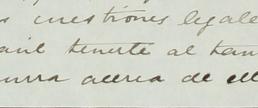 cuestiones legale
tenerte al tan
urra acerca de ell